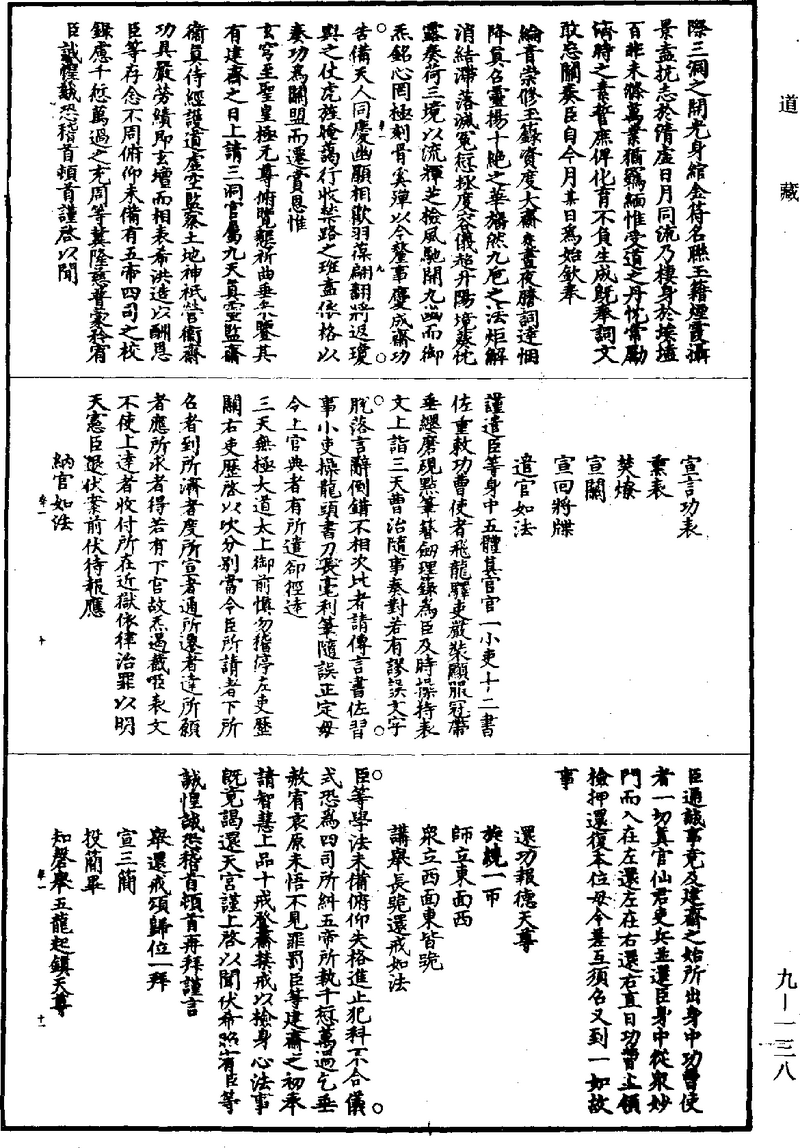 道藏
九—一三八
際三洞之開光身綰金符名聯玉籍煙霞滿
景盍抗志於清虛日月同流乃棲身於埃壒
百非未滌萬業猶羈緬惟受道之丹忱常勵
濟時之素誓庶俾化育不負生成既奉詞文
敢忘關奏臣自今月某日為始欽奉
綸音崇修玉籙資度大齋幾晝夜牓詞達悃
降真召靈揚十絕之華旛然九巵之法炬解
消結滯落滅冤愆拯度容儀超升陽境葵忱
露奏荷三境以流輝芝檢風馳開九幽而御
炁銘心罔極刻骨奚殫以今釐事慶成齋功
告備天人同慶幽顯相歡羽葆翩翻將返瓊
輿之仗虎旌晻藹行收禁路之班盍依格以
奏功為關盟而遷賞恩惟
玄穹至聖皇極元尊俯覽懇祈曲垂朱鑒其
有建齋之日上請三洞官屬九天真靈監齋
衛真侍經護道虛空監察土地神祇營衛齋
功具嚴勞績即玄壇而相表希洪造以酬恩
臣等存念不周俯仰未備有五帝四司之校
錄慮千愆萬過之充周等冀隆慈普蒙矜宥
臣誠惶誠恐稽首頓首謹啓以聞
宣言功表
熏表
焚燎
宣關
宣回將牒
遣官如法
謹遣臣等身中五體真官官一小吏十二書
佐重敕功曹使者飛龍驛吏嚴裝顯服冠帶
垂纓磨硯點筆簪劒理籙為臣及時操持表
文上詣三天曹治隨事奏對若有謬誤文字
脫落言辭倒錯不相次比者請傳言書佐習
事小吏操龍頭書刀長毫利筆隨誤正定毋
令上官典者有所遣卻徑達
三天無極大道太上御前慎勿稽停左吏歷
關右吏歷啓以次分別當令臣所請者下所
名者到所濟者度所宣者通所遷者達所願
者應所求者得若有下官故炁遏截臣表文
不使上達者收付所在近獄依律治罪以明
天憲臣退伏案前伏待報應
納官如法
臣通誠事竟及建齋之始所出身中功曹使
者一切真官仙君吏兵並還臣身中從眾妙
門而入在左還左在右還右直日功曹主領
檢押還復本位毋令差互須召又到一如故
事
還功報德天尊
旋繞一帀
師立東面西
眾立西面東皆跪
講舉長跪還戒如法
臣等學法未備俯仰失格進止犯科不合儀
式恐為四司所糾五帝所執千愆萬過乞垂
赦宥哀原未悟不見罪罰臣等建齋之初奉
請智慧上品十戒登齋禁戒以檢身心法事
既竟謁還天宮謹上啓以聞伏希照宥臣等
誠惶誠恐稽首頓首再拜謹言
舉還戒頌歸位一拜
宣三簡
投簡畢
知磬舉五龍起鎮天尊